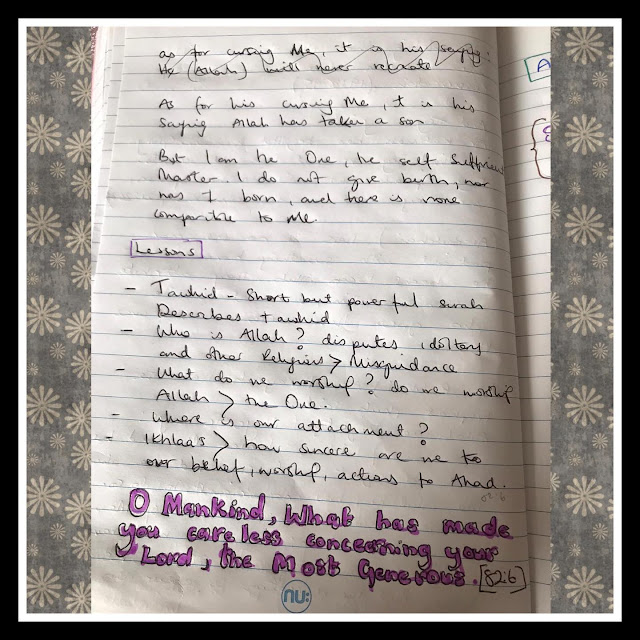 as for cursing Me, it is his saying:
He (Allah) will never recreate
As for his cursing Me, it is his
saying Allah has taken a son
But I am the One, the self Sufficient
Master. I do not give birth, nor
was I born, and there is none
comparable to Me.
Lessons
- Tawhid - Short but powerful surah
Describes tawhid
- Who is Allah? disputes idolatory
and other Religions > Misguidance
- What do we worship? do we worship
Allah > the One.
- Where is our attachment?
- Ikhlaas > how sincere are we to
our belief, worship, actions to Ahad.
82:6
O Mankind, What has made
you careless concerning your
Lord, the Most Generous. [82:6]
nu:
A